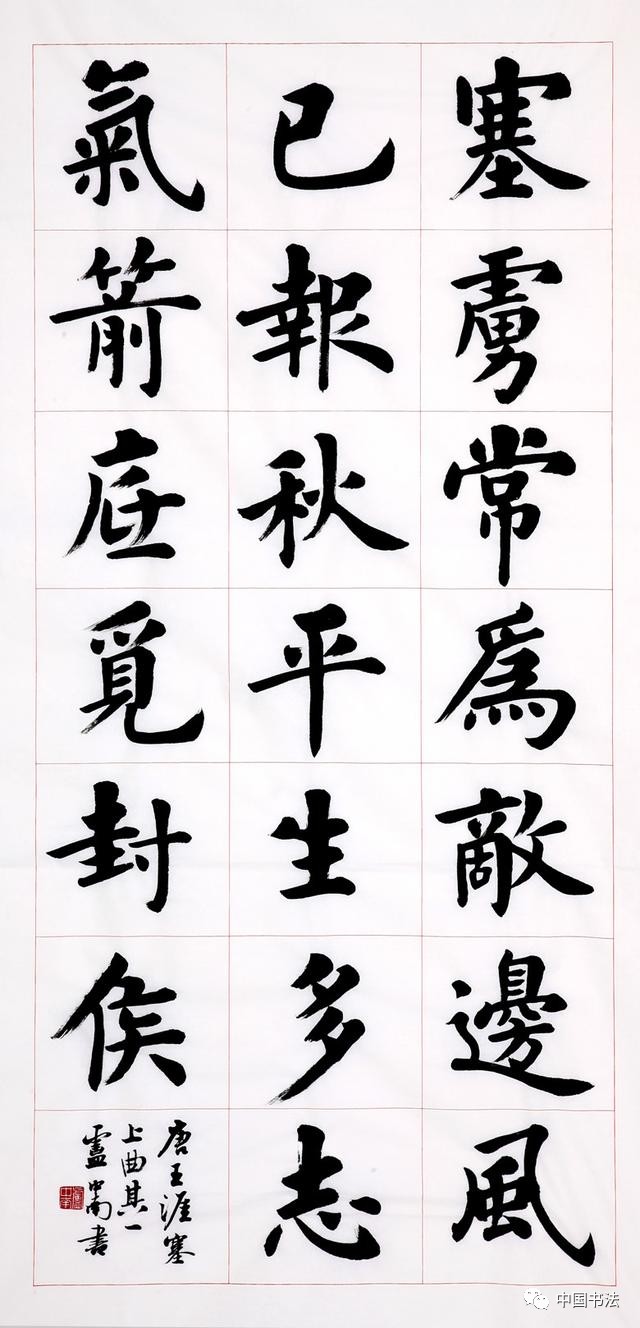 塞虜常爲敵邊風
已報秋平生多志
氣箭底覓封侯
唐王涯塞
上曲其一
盧中南書
盧中南
中国书法